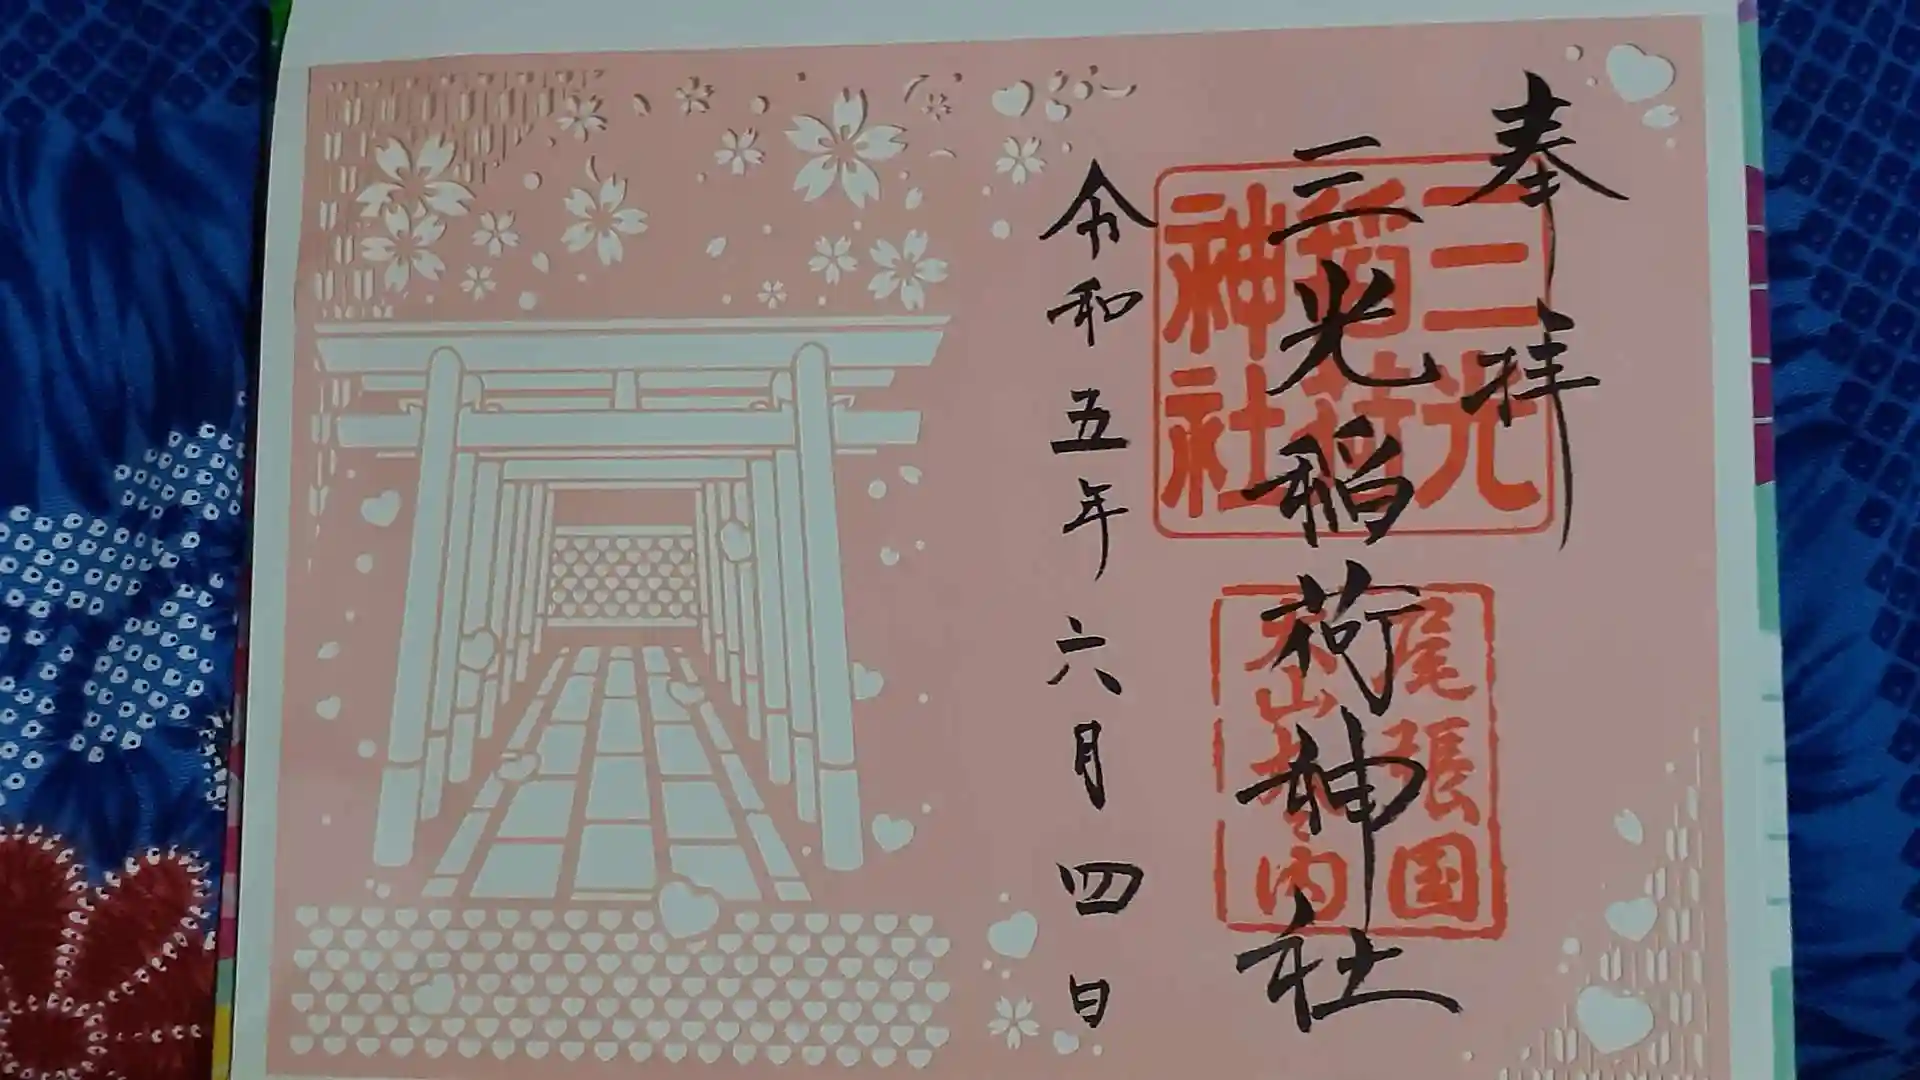 奉拝
三光稲荷神社
令和五年六月四日
三光
稲荷
神社
尾張国
犬山城内